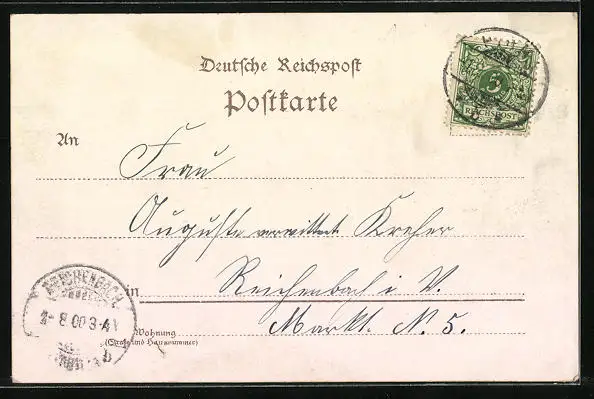 Deutsche Reichspost
Postkarte
5
REICHSPOST
An
Frau
Auguste verwittwete Kreher
in Reichenbach i. V.
Markt. N. 5.
Wohnung
(Straße und Hausnummer)
REICHENBACH
8 00 3-4
b